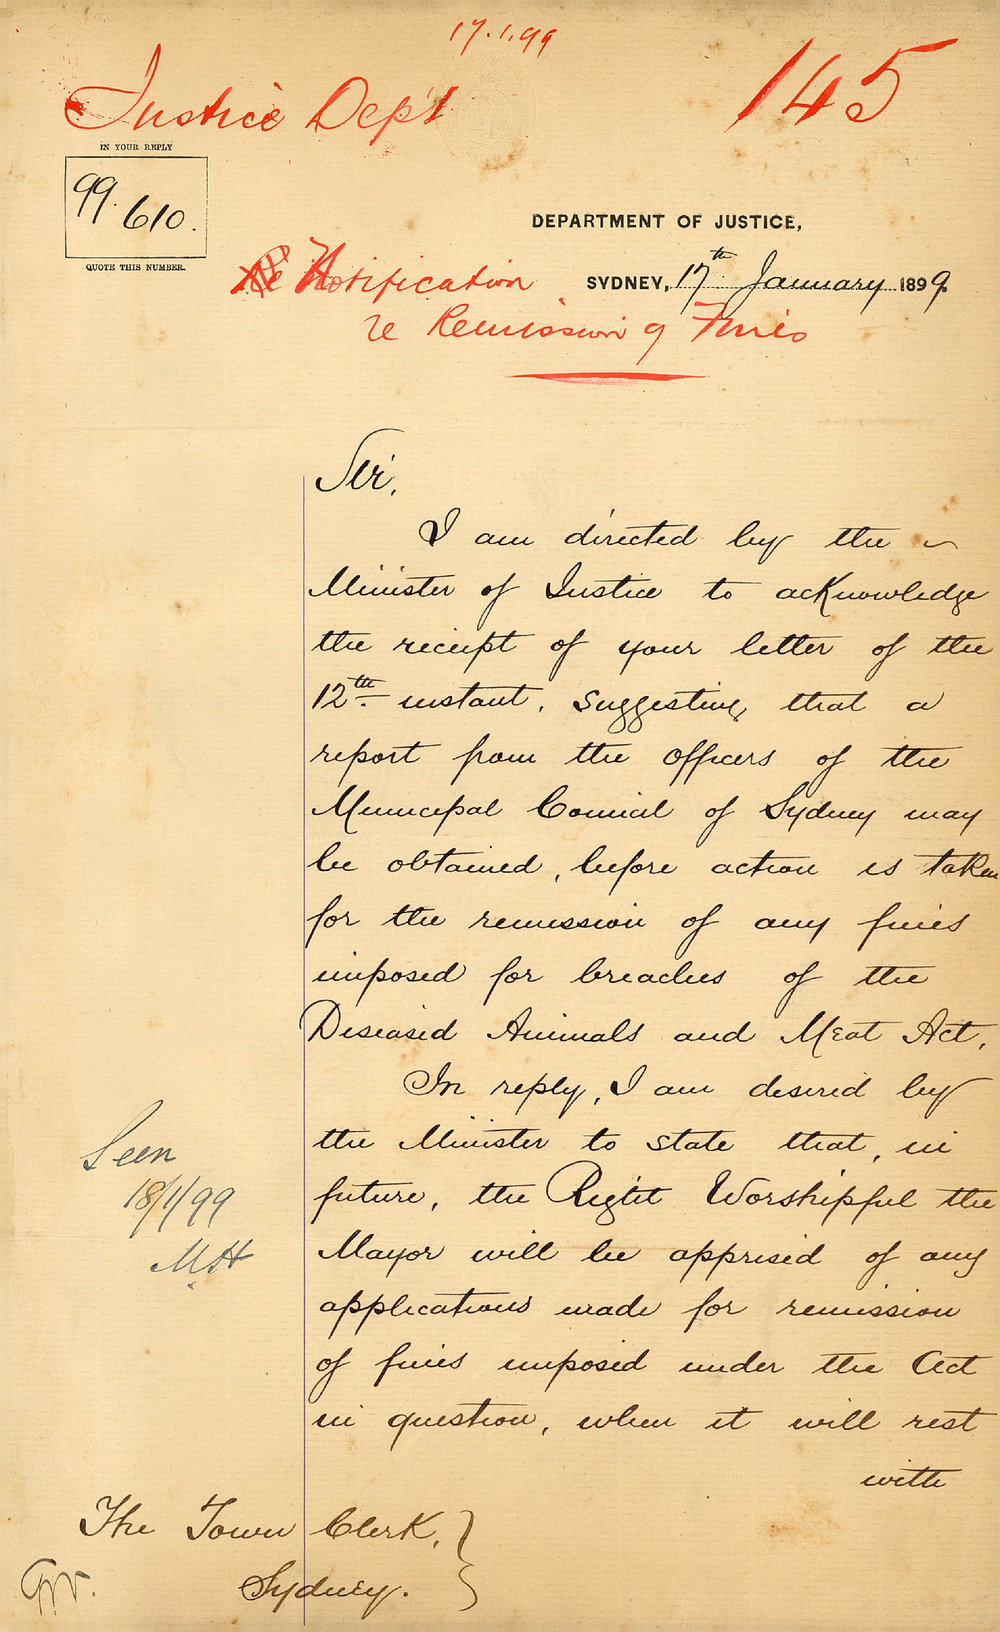 17.1.99
145
Justice Dep't
IN YOUR REPLY
99.610.
QUOTE THIS NUMBER.
DEPARTMENT OF JUSTICE,
SYDNEY, 17th January 1899.
Notification
re Remission of Fines
Sir,
I am directed by the
Minister of Justice to acknowledge
the receipt of your letter of the
12th instant, suggesting that a
report from the officers of the
Municipal Council of Sydney may
be obtained, before action is taken
for the remission of any fines
imposed for breaches of the
Diseased Animals and Meat Act.
In reply, I am desired by
the Minister to state that, in
future, the Right Worshipful the
Mayor will be apprised of any
applications made for remission
of fines imposed under the Act
in question, when it will rest
with
Seen
18/1/99
M.H
The Town Clerk,
Sydney.